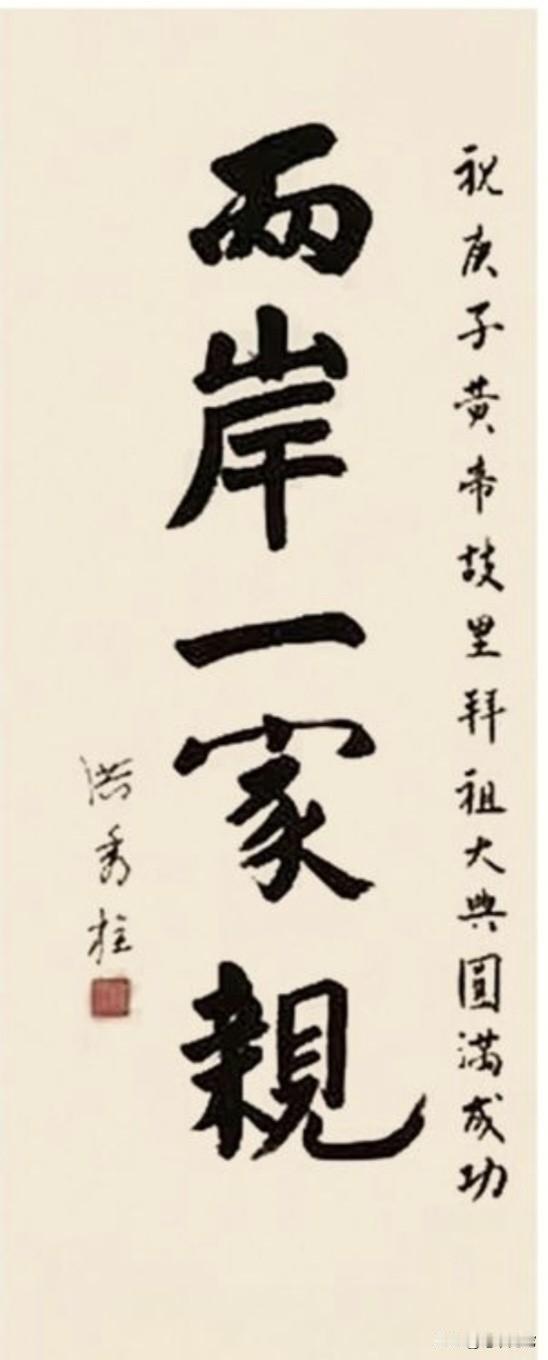 祝庚子黄帝故里拜祖大典圓满成功
兩岸一家親
洪秀柱